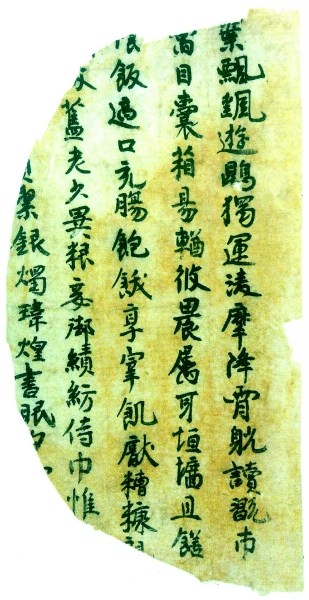 葉飄颻遊鵾獨運淩摩降霄躭讀翫市
寓目囊箱易輶攸畏屬耳垣墻且饍
飯適口充腸飽飫享宰飢猒糟糠
舊老少異粮妾御績紡侍巾帷
絜銀燭煒煌晝眠夕